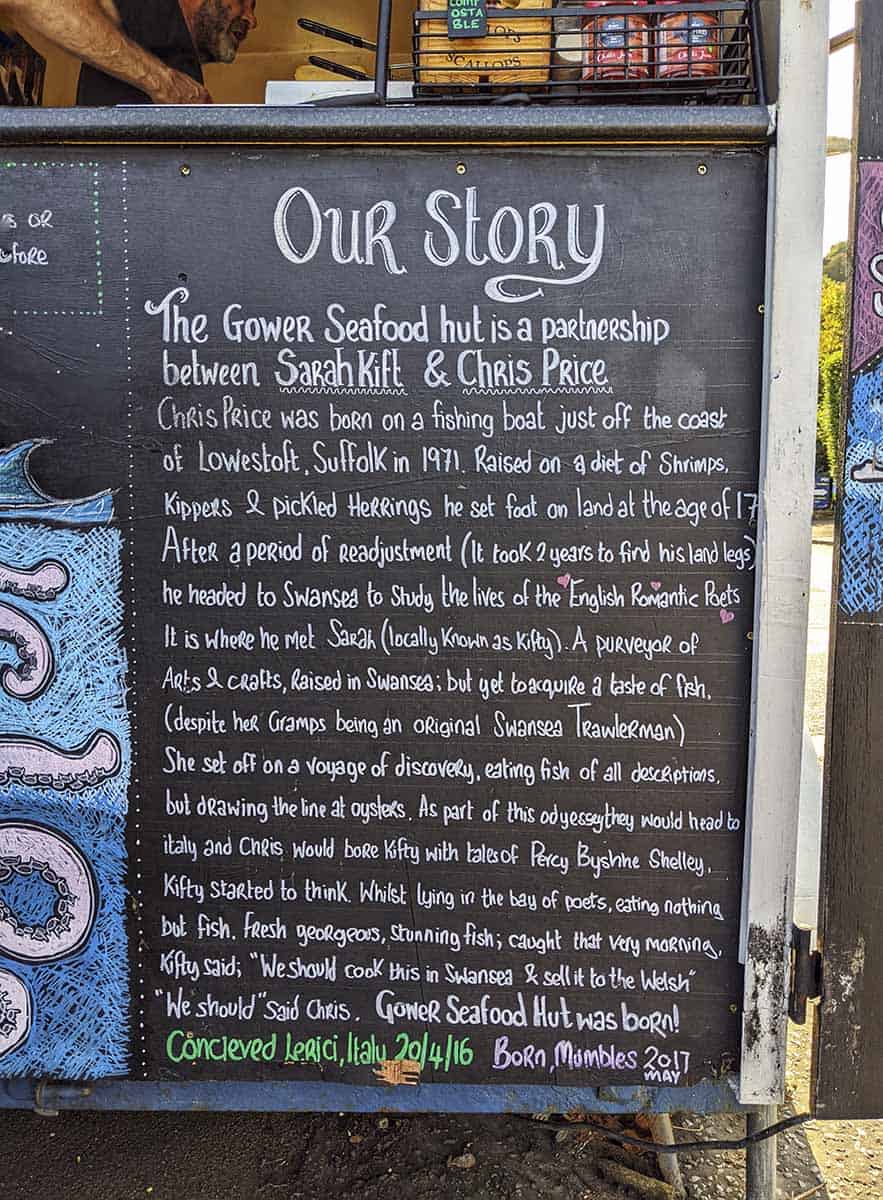 COMP
OSTA
BLE
SCALLOPS
S OR
efore
Our Story
The Gower Seafood hut is a partnership
between Sarah Kift & Chris Price
Chris Price was born on a fishing boat just off the coast
of Lowestoft, Suffolk in 1971. Raised on a diet of Shrimps,
Kippers & pickled Herrings he set foot on land at the age of 17
After a period of readjustment (It took 2 years to find his land legs)
he headed to Swansea to study the lives of the English Romantic Poets
It is where he met Sarah (locally known as Kifty). A purveyor of
Arts & crafts, Raised in Swansea; but yet to acquire a taste of fish,
(despite her Gramps being an original Swansea Trawlerman)
She set off on a voyage of discovery, eating fish of all descriptions,
but drawing the line at oysters. As part of this odyessey they would head to
italy and Chris would bore Kifty with tales of Percy Byshhe Shelley,
Kifty started to think. Whilst lying in the bay of poets, eating nothing
but fish. Fresh georgeous, stunning fish; caught that very morning,
Kifty said; "We should cook this in Swansea & sell it to the Welsh"
"We should" said Chris. Gower Seafood Hut was born!
Concieved Lerici, Italy 20/4/16 Born, Mumbles 2017
MAY